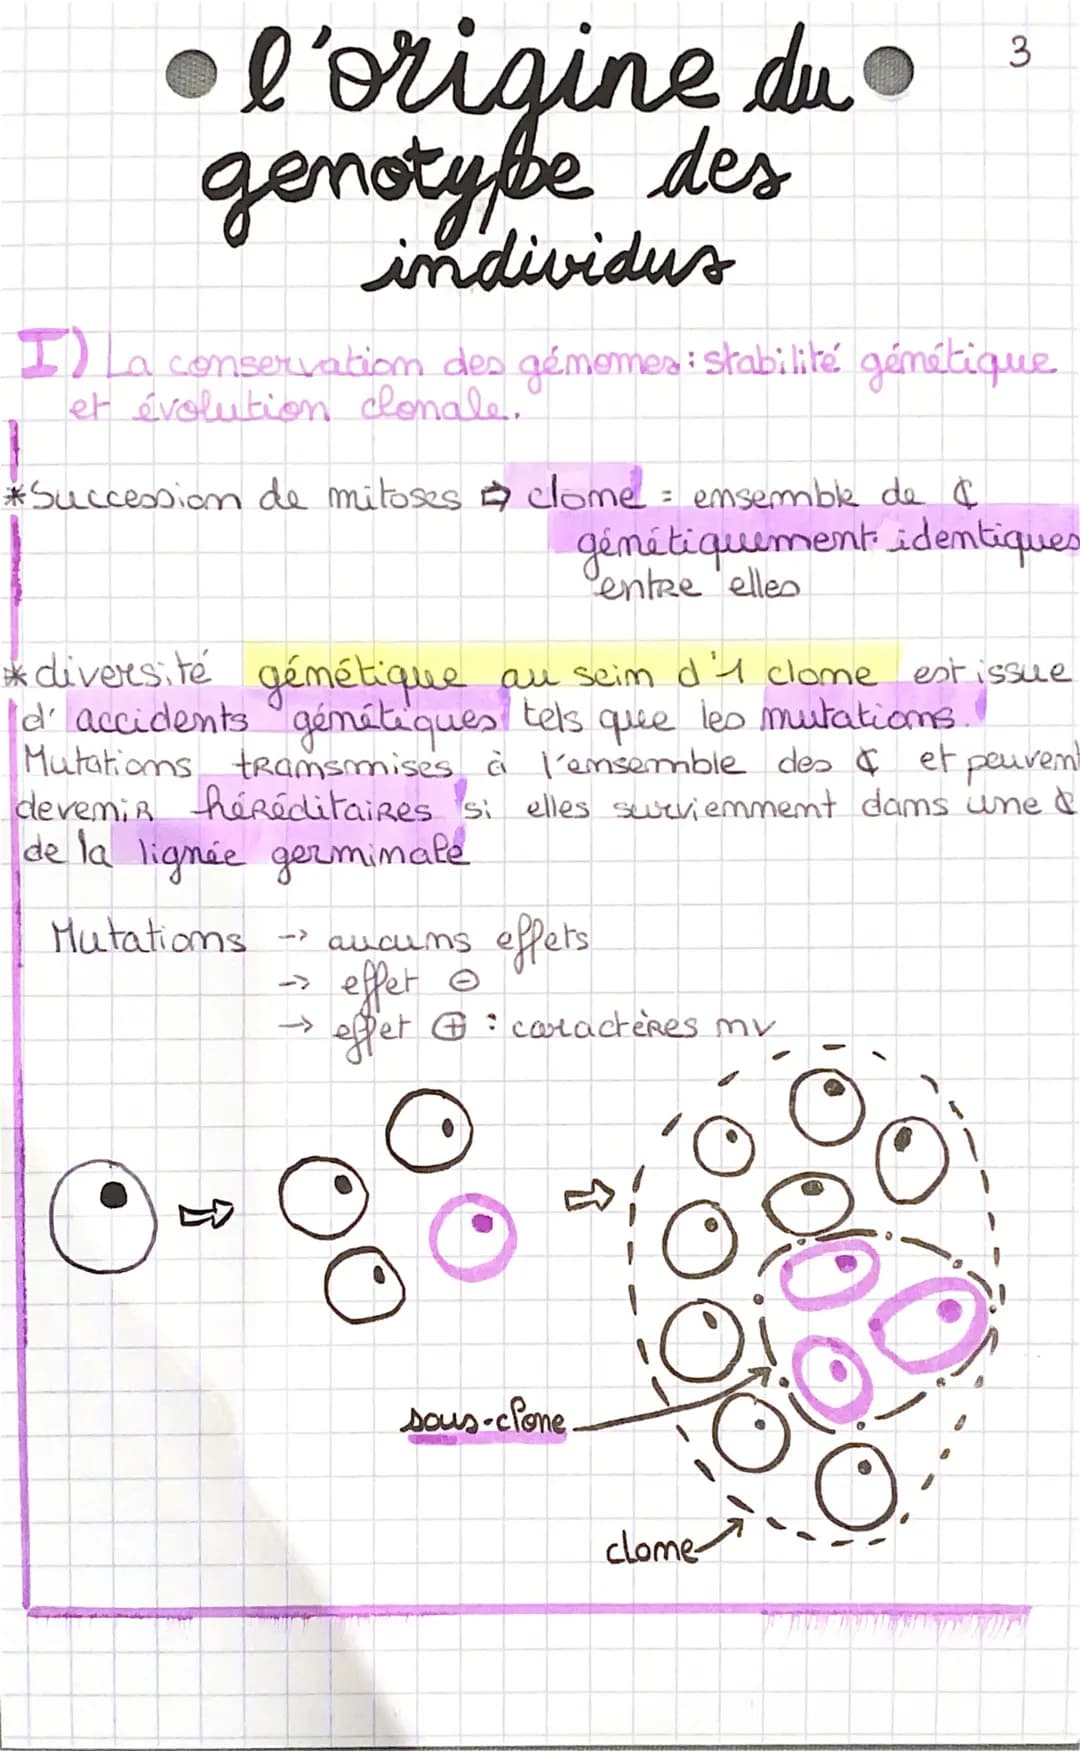 3
l'origine du
genotype des
individus
I) La conservation des génomes : stabilité génétique
et évolution clonale.
*Succession de mitoses ⇨ clone = ensemble de ₵
génétiquement identiques
entre elles
*diversité génétique au sein d'1 clone est issue
d'accidents génétiques tels que les mutations.
Mutations transmises à l'ensemble des ₵ et peuvent
devenir héréditaires si elles surviennent dans une ₵
de la lignée germinale
Mutations -> aucuns effets
-> effet ⊖
-> effet ⊕ : caractères nv
sous-clone
clone